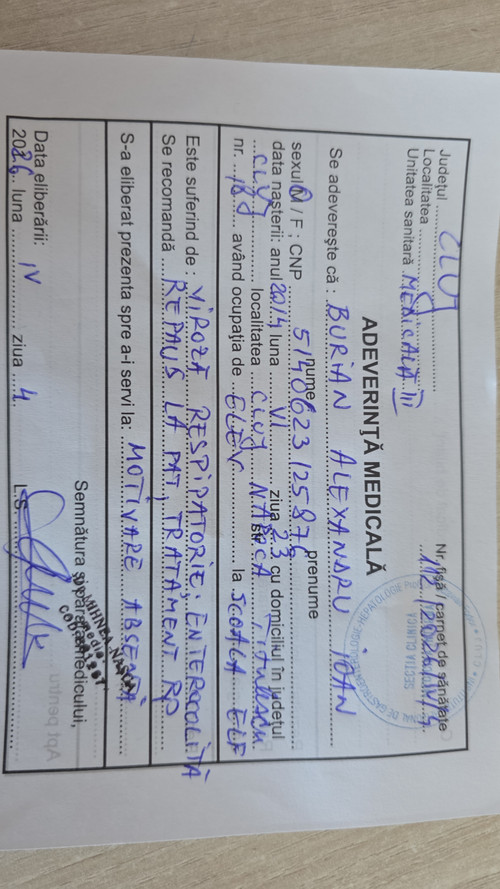 Județul CLUJ
Localitatea
Unitatea sanitară MEDICALĂ III
Nr. fișă / carnet de sănătate
ADEVERINȚĂ MEDICALĂ
Se adeverește că : BURIAN ALEXANDRU IOAN
nume prenume
sexul M / F ; CNP 5140623125876
data nașterii: anul 2014 luna VI ziua 23 cu domiciliul în județul
CLUJ localitatea CLUJ NAPOCA str.
nr. având ocupația de ELEV la ȘCOALA
Este suferind de : VIROZĂ RESPIRATORIE; ENTEROCOLITĂ
Se recomandă REPAUS LA PAT, TRATAMENT RP
S-a eliberat prezenta spre a-i servi la: MOTIVARE ABSENȚĂ
Semnătura și parafa medicului,
MIHNEA
Data eliberării:
2026 luna IV ziua 4 L.S.
SECȚIA CLINICĂ